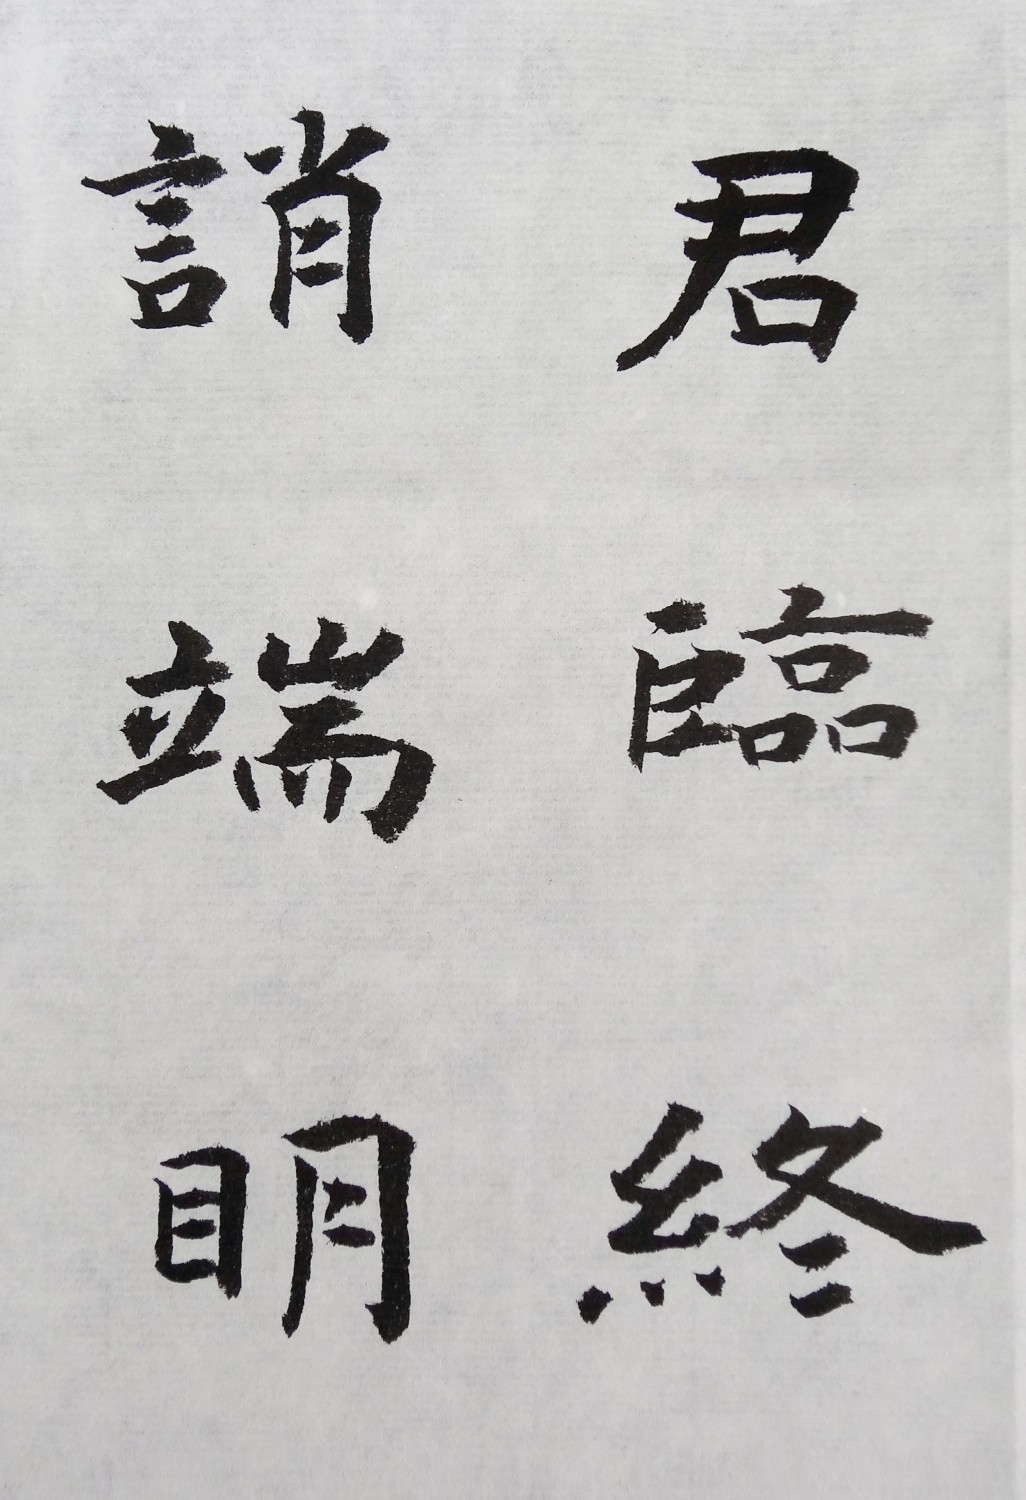 君臨終
誚端眀